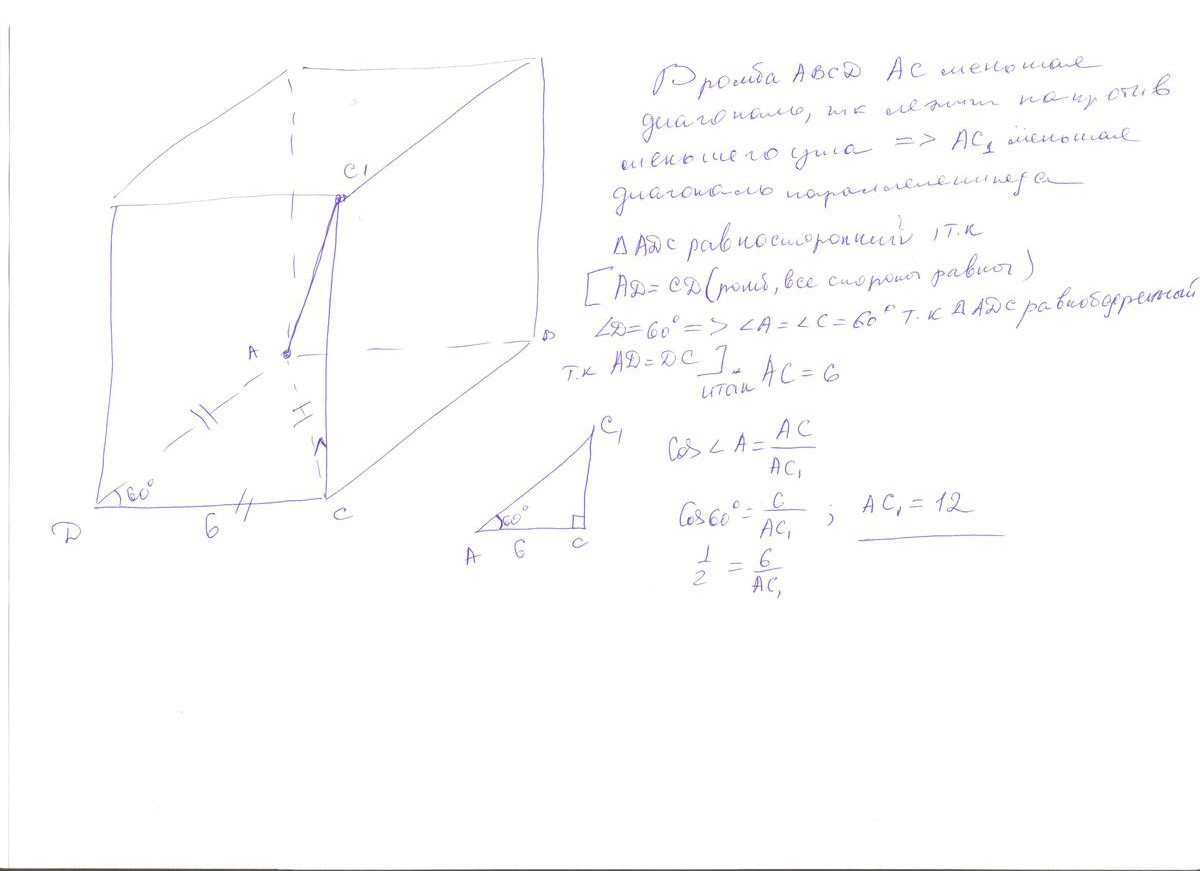 В ромба ABCD AC меньшая
диагональ, тк лежит напротив
меньшего угла => AC1 меньшая
диагональ параллелепипеда
Δ ADC равносторонний, т.к
[AD = CD (ромб, все стороны равны)
∠D=60° => ∠A=∠C=60° т.к Δ ADC равнобедренный
т.к AD=DC ]
итак AC = 6
C1
A
B
60°
6
D
C
C1
60°
A
6
C
Cos∠A = AC/AC1
Cos60° = 6/AC1 ; AC1 = 12
1/2 = 6/AC1